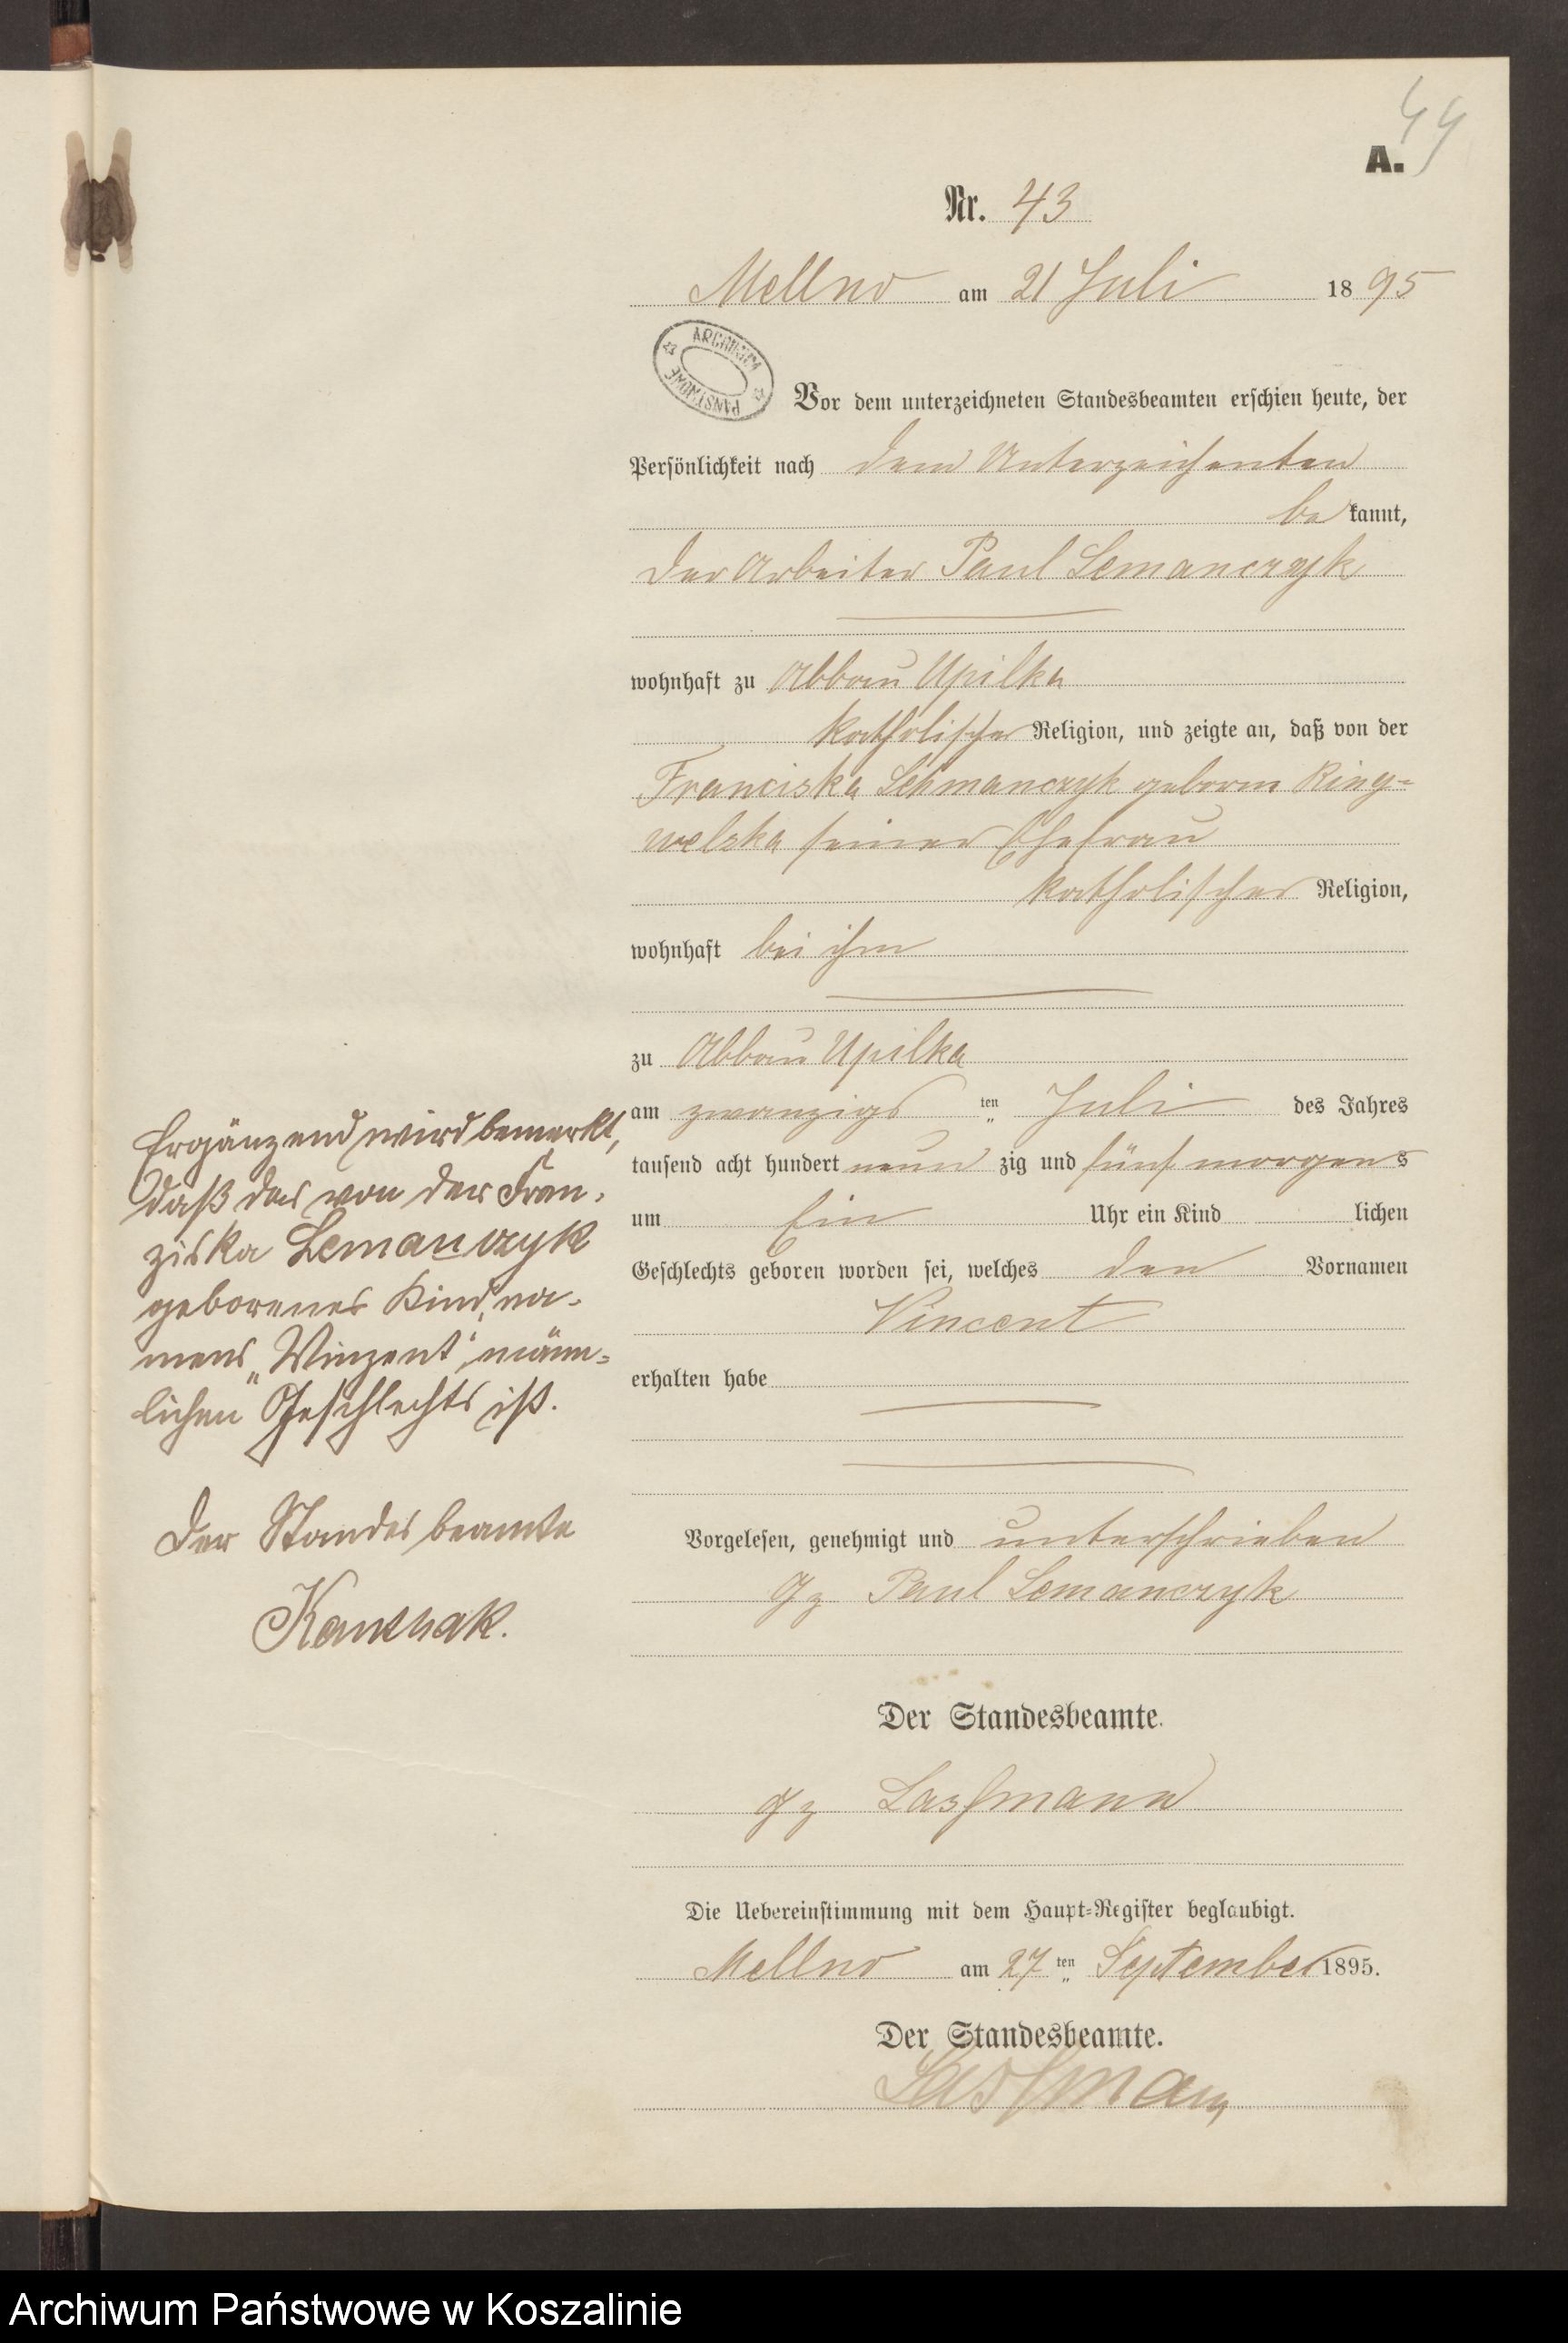 44
A.
Nr. 43
Mellno am 21 Juli 1895
ARCHIWUM PAŃSTWOWE
Vor dem unterzeichneten Standesbeamten erschien heute, der
Persönlichkeit nach dem Unterzeichenten
be kannt,
der Arbeiter Paul Lemanczyk
wohnhaft zu Abbau Upilka
katholischer Religion, und zeigte an, daß von der
Franciska Lehmanczyk geboren Ring=
welska seiner Ehefrau
katholischer Religion,
wohnhaft bei ihm
zu Abbau Upilka
am zwanzigs ten Juli des Jahres
tausend acht hundert neun zig und fünf morgens
um Ein Uhr ein Kind lichen
Geschlechts geboren worden sei, welches den Vornamen
Vincent
erhalten habe
Vorgelesen, genehmigt und unterschrieben
gz Paul Lemanczyk
Der Standesbeamte.
gz Lassmann
Die Uebereinstimmung mit dem Haupt=Register beglaubigt.
Mellno am 27 ten September 1895.
Der Standesbeamte.
Lassmann
Ergänzend wird bemerkt,
daß das von der Fran-
ziska Lemanczyk
geborenes Kind, na-
mens „Winzent“, männ=
lichen Geschlechts ist.
Der Standesbeamte
Archiwum Państwowe w Koszalinie